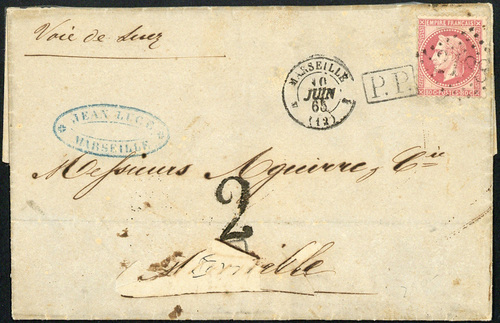 Voie de Suez
EMPIRE FRANÇAIS
MARSEILLE
10
JUIN
65
(12)
P.P.
JEAN LUCY
MARSEILLE
Messieurs Aguirre, Cie
2